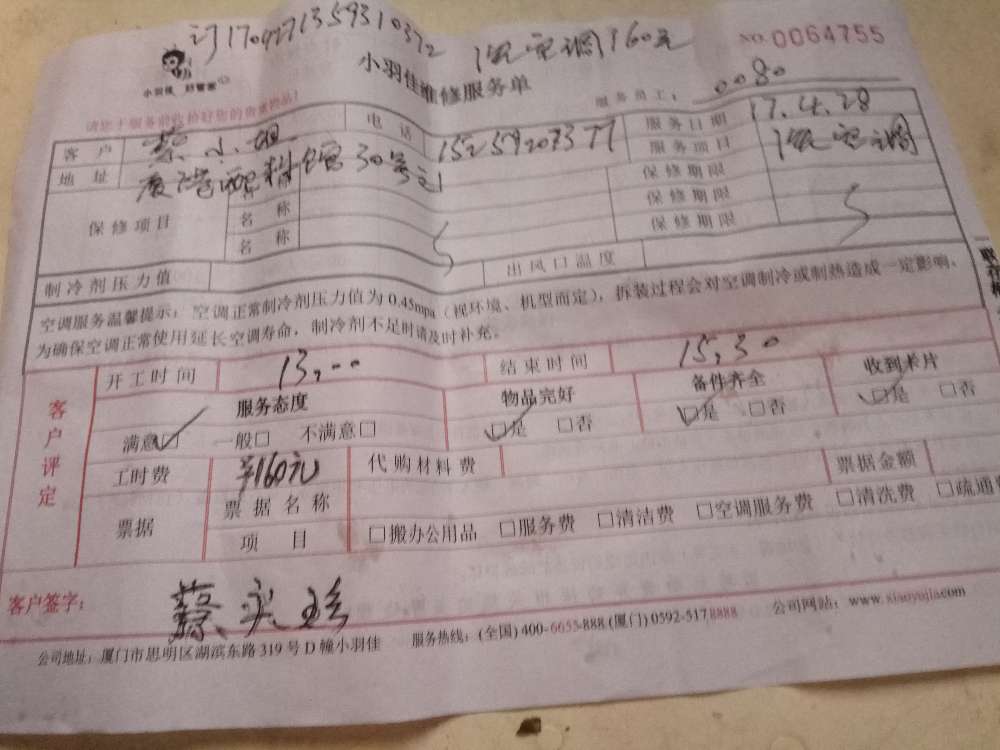 NO.0064755
小羽佳 好管家
小羽佳维修服务单
服务员工: 0080
请您于服务前收拾好您的贵重物品!
客户 蔡小姐 电话 15259207377 服务日期 17.4.28
地址 30号 服务项目 空调
保修项目 名称 保修期限
名称 保修期限
名称 保修期限
制冷剂压力值 出风口温度
空调服务温馨提示: 空调正常制冷剂压力值为0.45mpa(视环境、机型而定), 拆装过程会对空调制冷或制热造成一定影响、
为确保空调正常使用延长空调寿命, 制冷剂不足时请及时补充。
客户评定
开工时间 13,00 结束时间 15,30
服务态度 物品完好 备件齐全 收到卡片
满意☑ 一般□ 不满意□ ☑是 □否 ☑是 □否 ☑是 □否
工时费 ¥160元 代购材料费 票据金额
票据 票据名称
项目 □搬办公用品 □服务费 □清洁费 □空调服务费 □清洗费 □疏通费
客户签字: 蔡
公司地址: 厦门市思明区湖滨东路319号D幢小羽佳 服务热线: (全国) 400-6655-888 (厦门) 0592-5178888 公司网站: www.xiaoyujia.com